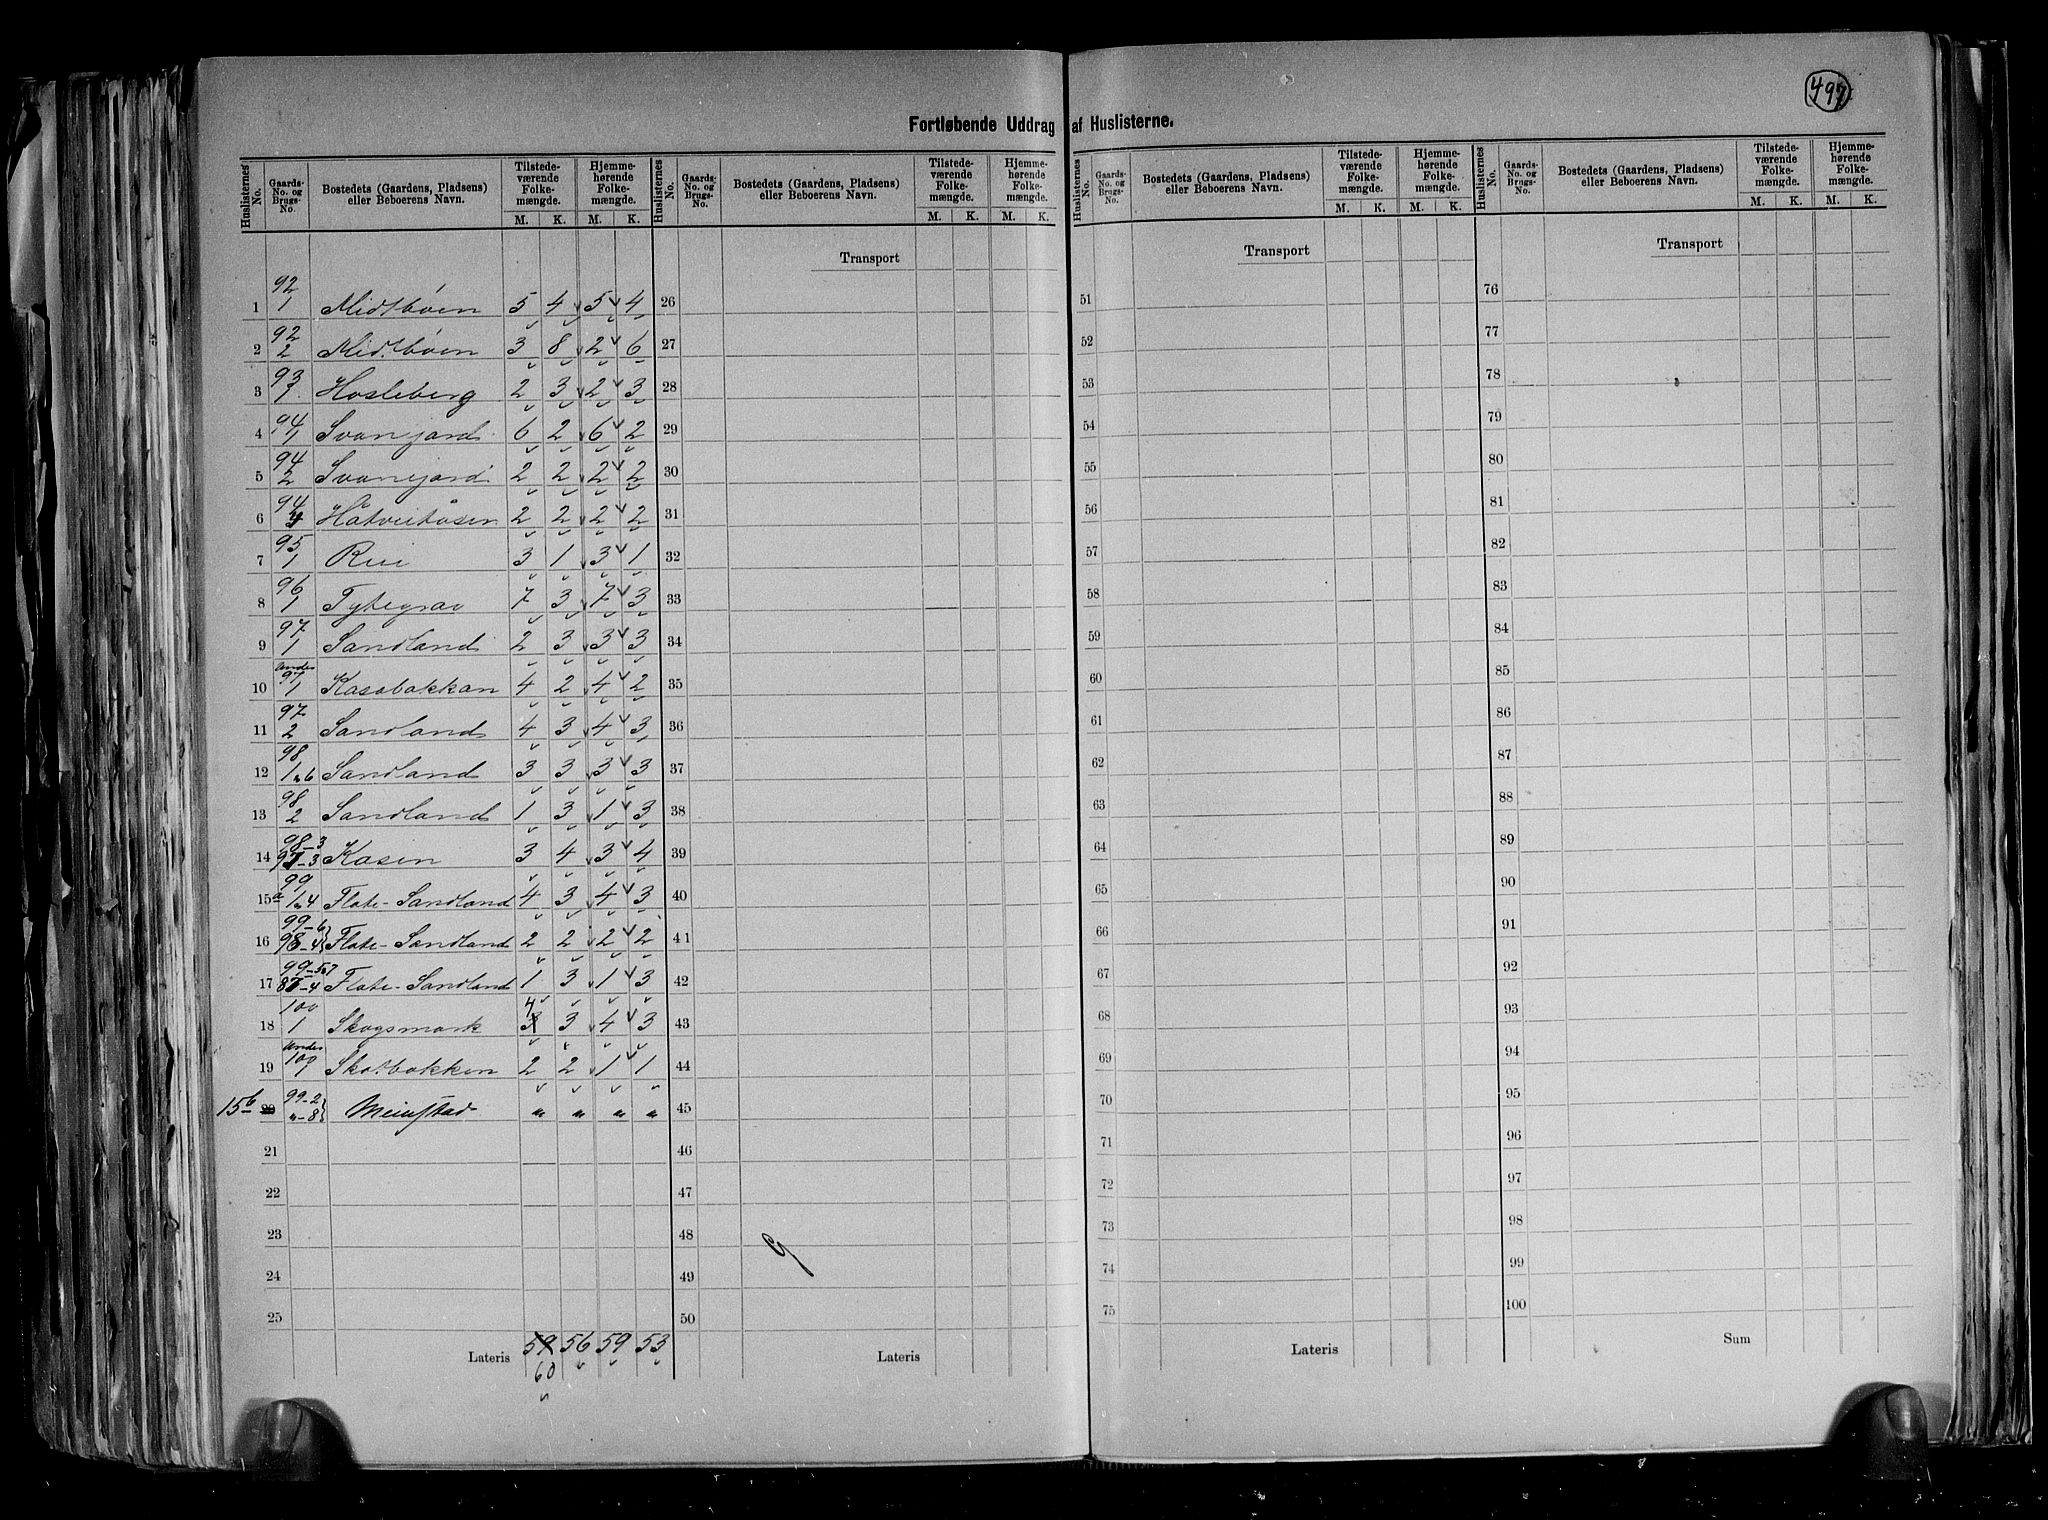 497
Fortløbende Uddrag af Huslisterne.
Huslisternes No. Gaards-No. og Brugs-No. Bostedets (Gaardens, Pladsens) eller Beboerens Navn. Tilstedeværende Folkemængde. M. K. Hjemmehørende Folkemængde. M. K.
Huslisternes No. Gaards-No. og Brugs-No. Bostedets (Gaardens, Pladsens) eller Beboerens Navn. Tilstedeværende Folkemængde. M. K. Hjemmehørende Folkemængde. M. K.
Huslisternes No. Gaards-No. og Brugs-No. Bostedets (Gaardens, Pladsens) eller Beboerens Navn. Tilstedeværende Folkemængde. M. K. Hjemmehørende Folkemængde. M. K.
Huslisternes No. Gaards-No. og Brugs-No. Bostedets (Gaardens, Pladsens) eller Beboerens Navn. Tilstedeværende Folkemængde. M. K. Hjemmehørende Folkemængde. M. K.
1 92/1 Midtbøen 5 4 5 4
2 92/2 Midtbøen 3 8 2 6
3 93/1 Hosleberg 2 3 2 3
4 94/1 Svanejord 6 2 6 2
5 94/2 Svanejord 2 2 2 2
6 94 Hatveitåsen 2 2 2 2
7 95/1 Rui 3 1 3 1
8 96/1 Tytegrav 7 3 7 3
9 97/1 Sandland 2 3 3 3
10 under 97/1 Kasabakkan 4 2 4 2
11 97/2 Sandland 4 3 4 3
12 98/1 " 6 Sandland 3 3 3 3
13 98/2 Sandland 1 3 1 3
14 98-3 97-3 Kasin 3 4 3 4
15a 99/1 " 4 Flate-Sandland 4 3 4 3
16 99-6 98-4 Flate-Sandland 2 2 2 2
17 99-5"7 Flate-Sandland 1 3 1 3
18 100/1 Skogsmark 4 3 4 3
19 under 100/1 Skotbakken 2 2 1 1
15b 20 99-2 "-8 Meinstad " " " "
21
22
23
24
25
Lateris 59 56 59 53
60
Transport
26
27
28
29
30
31
32
33
34
35
36
37
38
39
40
41
42
43
44
45
46
47
48
49
50
Lateris
Transport
51
52
53
54
55
56
57
58
59
60
61
62
63
64
65
66
67
68
69
70
71
72
73
74
75
Lateris
Transport
76
77
78
79
80
81
82
83
84
85
86
87
88
89
90
91
92
93
94
95
96
97
98
99
100
Sum